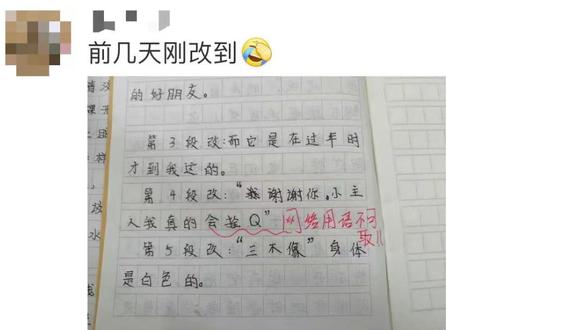 前几天刚改到🤣
的好朋友。
第3段改:而它是在过年时
才到我这的。
第4段改:“谢谢你,小主
人我真的会蕉Q”网络用语不可取!!
第5段改:“三不像”身体
是白色的。